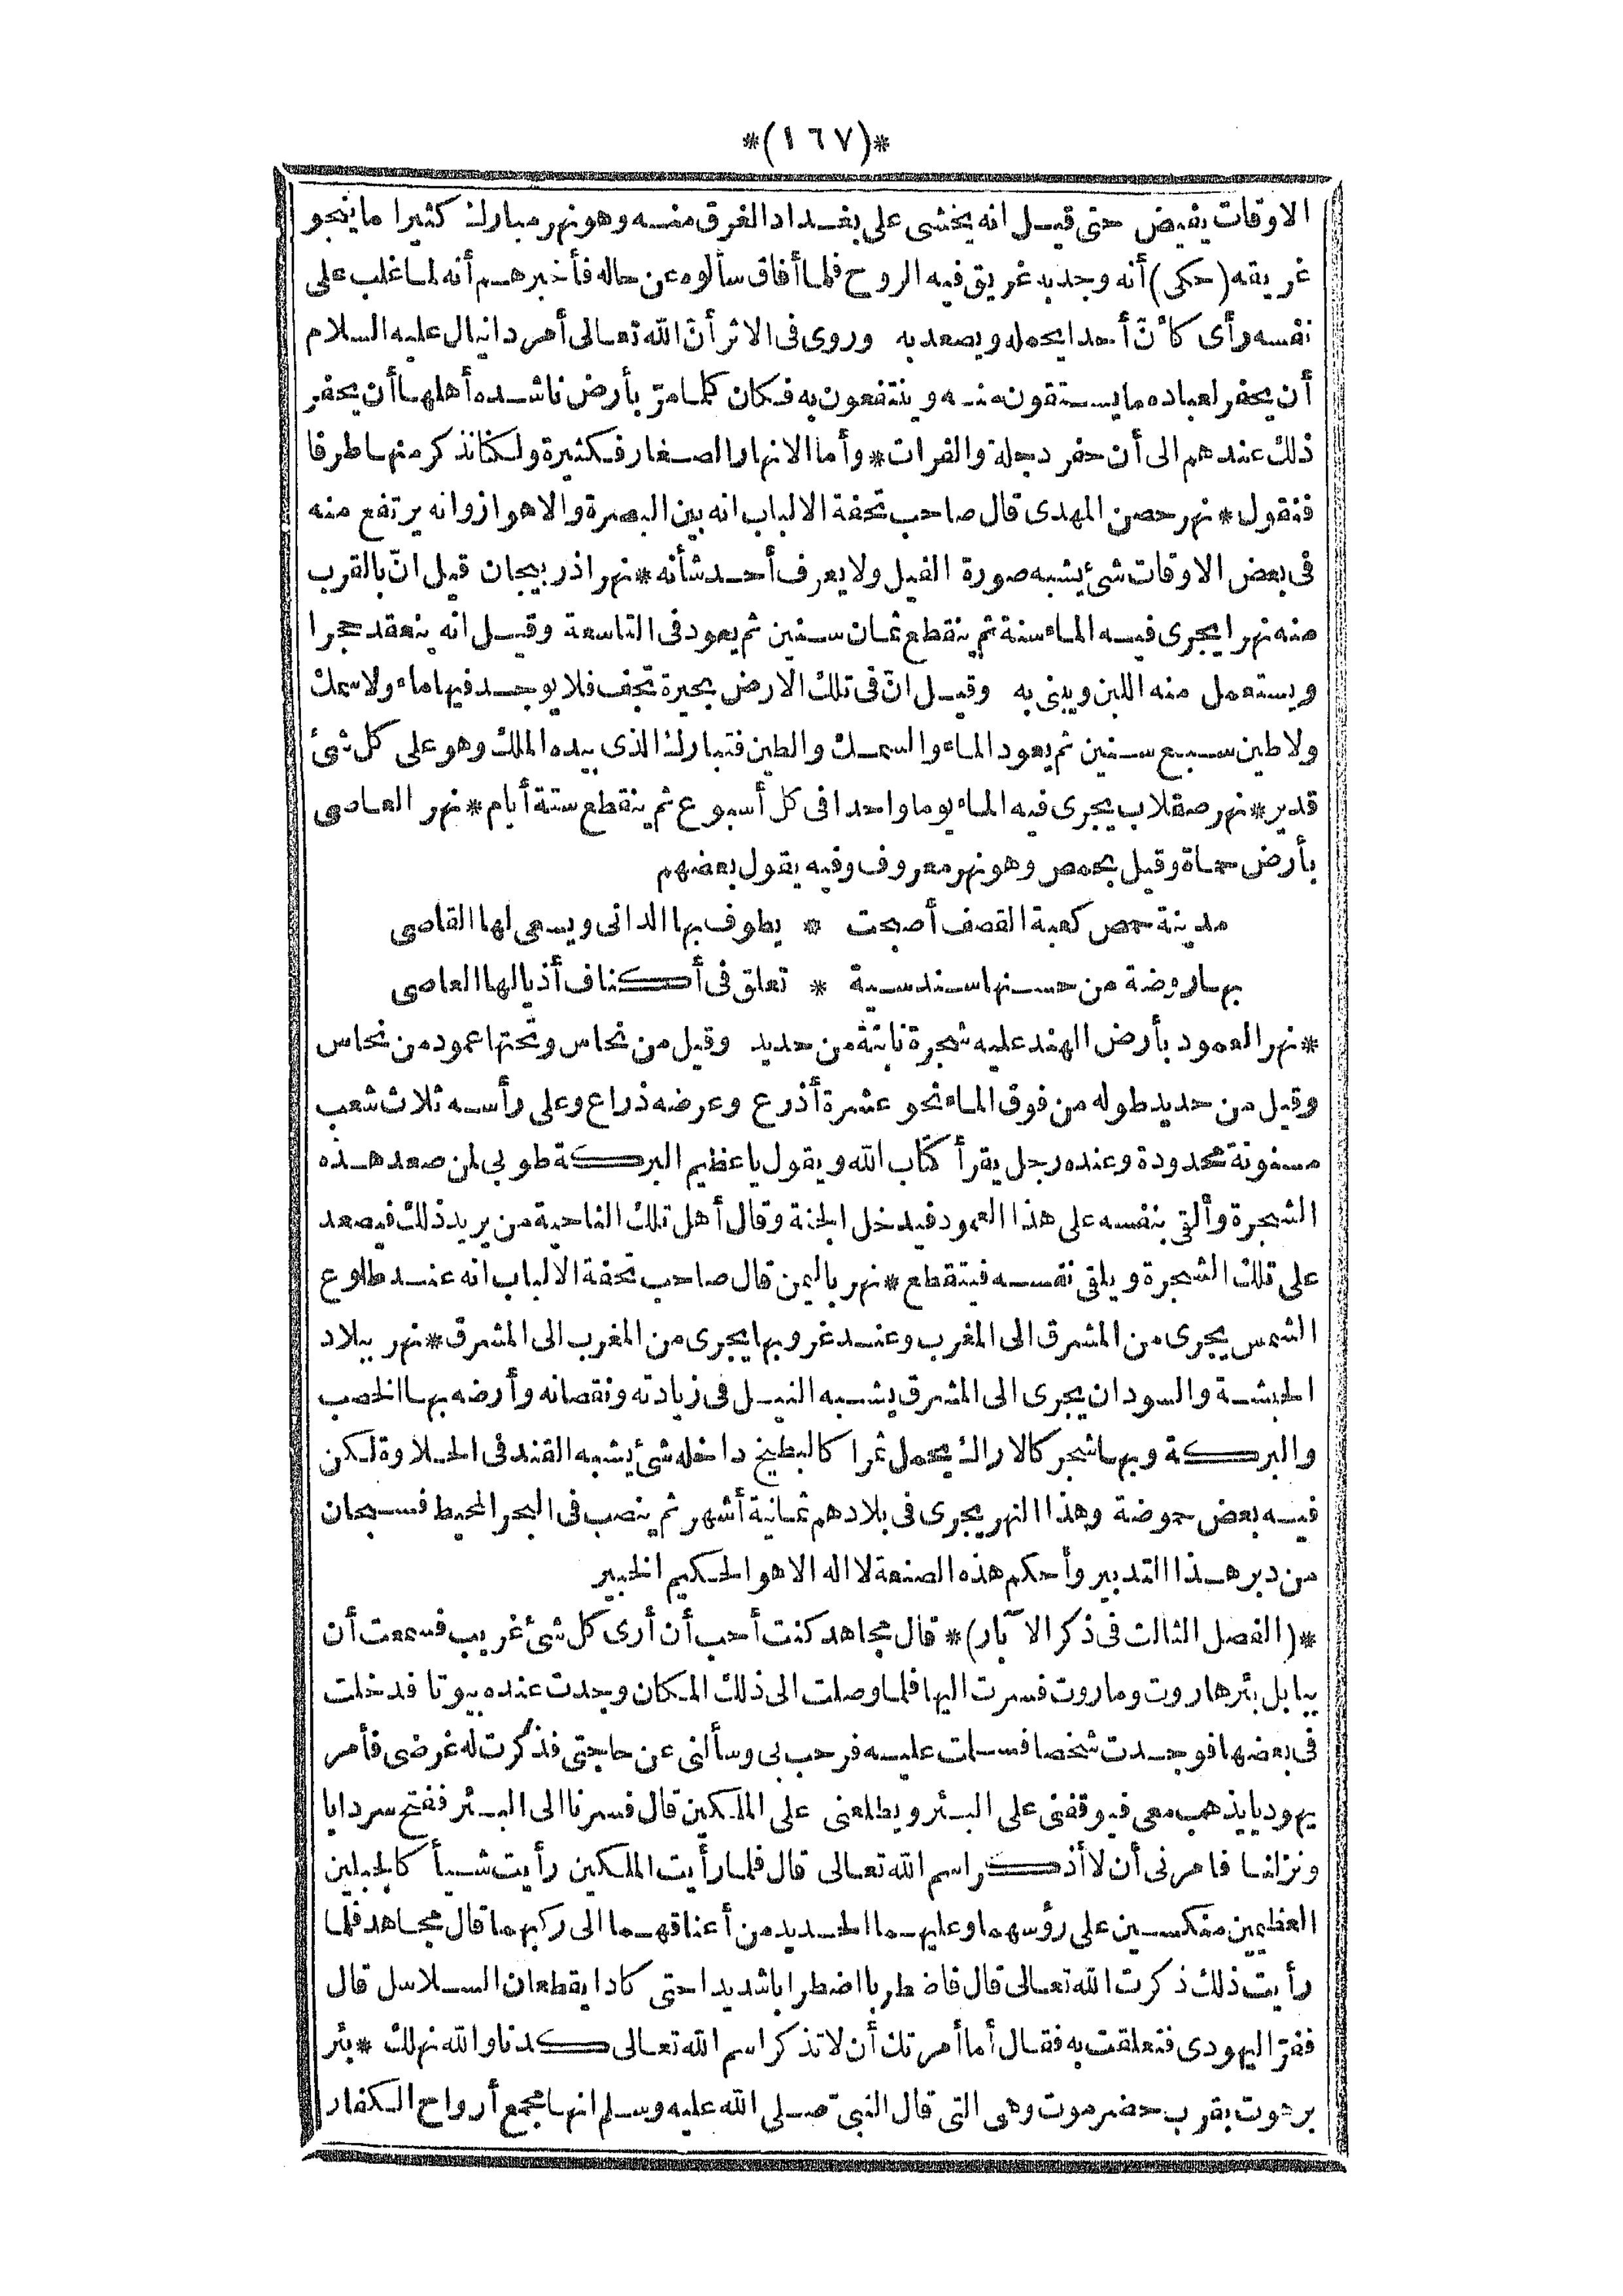 *(١٦٧)*
الاوقات يفيض حتى قيل انه يخشى على بغداد الغرق منه وهو نهر مبارك كثيرا ما ينجو
غريقه (حكى) أنه وجد به غريق فيه الروح فلما أفاق سألوه عن حاله فأخبرهم أنه لما غلب على
نفسه رأى كأنّ أحدا يحمله ويصعد به وروى فى الاثر أنّ الله تعالى أمر دانيال عليه السلام
أن يحفر لعباده ما يستقون منه وينتفعون به فكان كلما مرّ بأرض ناشده أهلها أن يحفر
ذلك عندهم الى أن حفر دجلة والفرات * وأما الانهار الصغار فكثيرة ولكنا نذكر منها طرفا
فنقول * نهر حصن المهدى قال صاحب تحفة الالباب انه بين البصرة والاهواز وانه يرتفع منه
فى بعض الاوقات شئ يشبه صورة الفيل ولا يعرف أحد شأنه * نهر اذربيجان قيل انّ بالقرب
منه نهرا يجرى فيه الماء سنة ثم ينقطع ثمان سنين ثم يعود فى التاسعة وقيل انه ينعقد حجرا
ويستعمل منه اللبن ويبنى به وقيل انّ فى تلك الارض بحيرة تجف فلا يوجد فيها ماء ولا سمك
ولا طين سبع سنين ثم يعود الماء والسمك والطين فتبارك الذى بيده الملك وهو على كل شئ
قدير * نهر صقلاب يجرى فيه الماء يوما واحدا فى كل أسبوع ثم ينقطع ستة أيام * نهر العاصى
بأرض حماة وقيل بحمص وهو نهر معروف وفيه يقول بعضهم
مدينة حمص كعبة القصف أصبحت * يطوف بها الدانى ويسعى لها القاصى
بها روضة من حسنها سندسية * تعلق فى أكناف أذيالها العاصى
* نهر العمود بأرض الهند عليه شجرة نابتة من حديد وقيل من نحاس وتحتها عمود من نحاس
وقيل من حديد طوله من فوق الماء نحو عشرة أذرع وعرضه ذراع وعلى رأسه ثلاث شعب
مسنونة محدودة وعنده رجل يقرأ كتاب الله ويقول يا عظيم البركة طوبى لمن صعد هذه
الشجرة وألقى بنفسه على هذا العمود فيدخل الجنة وقال أهل تلك الناحية من يريد ذلك فيصعد
على تلك الشجرة ويلقى نفسه فيتقطع * نهر باليمن قال صاحب تحفة الالباب انه عند طلوع
الشمس يجرى من المشرق الى المغرب وعند غروبها يجرى من المغرب الى المشرق * نهر ببلاد
الحبشة والسودان يجرى الى المشرق يشبه النيل فى زيادته ونقصانه وأرضه بها الخصب
والبركة وبها شجر كالاراك يحمل ثمرا كالبطيخ داخله شئ يشبه القند فى الحلاوة لكن
فيه بعض حموضة وهذا النهر يجرى فى بلادهم ثمانية أشهر ثم ينصب فى البحر المحيط فسبحان
من دبر هذا التدبير وأحكم هذه الصنعة لا اله الا هو الحكيم الخبير
*(الفصل الثالث فى ذكر الآبار)* قال مجاهد كنت أحب أن أرى كل شئ غريب فسمعت أن
ببابل بئر هاروت وماروت فسرت اليها فلما وصلت الى ذلك المكان وجدت عنده بيوتا فدخلت
فى بعضها فوجدت شخصا فسلمت عليه فرحب بى وسألنى عن حاجتى فذكرت له غرضى فأمر
يهوديا يذهب معى فيوقفنى على البئر ويطلعنى على الملكين قال فسرنا الى البئر ففتح سردابا
ونزلنا فامرنى أن لا أذكر اسم الله تعالى قال فلما رأيت الملكين رأيت شيأ كالجبلين
العظيمين منكسين على رؤسهما وعليهما الحديد من أعناقهما الى ركبهما قال مجاهد فلما
رأيت ذلك ذكرت الله تعالى قال فاضطربا اضطرابا شديدا حتى كادا يقطعان السلاسل قال
ففرّ اليهودى فتعلقت به فقال أما أمرتك أن لا تذكر اسم الله تعالى كدنا والله نهلك * بئر
برهوت بقرب حضرموت وهى التى قال النبىّ صلى الله عليه وسلم انها مجمع أرواح الكفار